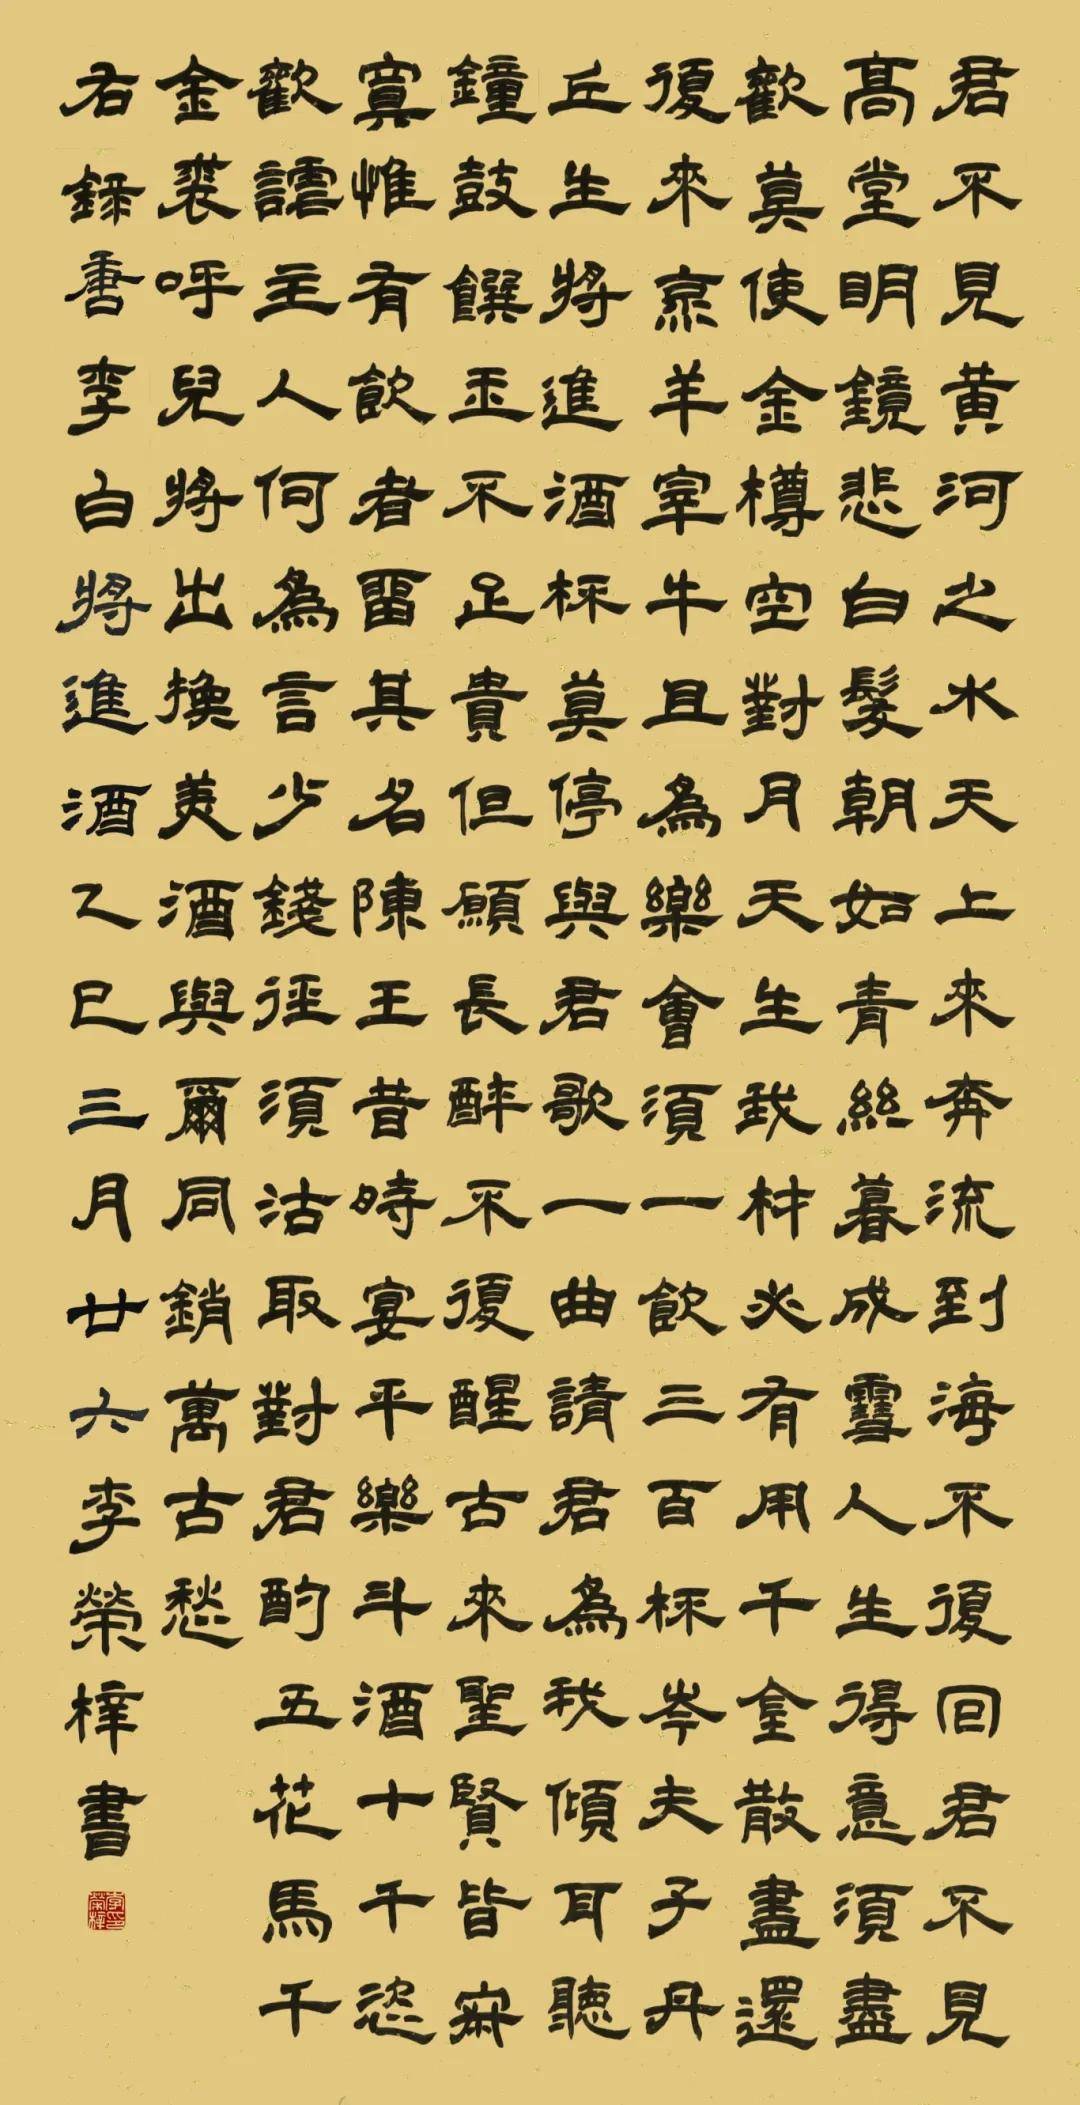 君不見黃河之水天上來奔流到海不復回君不見
高堂明鏡悲白髮朝如青絲暮成雪人生得意須盡
歡莫使金樽空對月天生我材必有用千金散盡還
復來烹羊宰牛且為樂會須一飲三百杯岑夫子丹
丘生將進酒杯莫停與君歌一曲請君為我傾耳聽
鐘鼓饌玉不足貴但願長醉不復醒古來聖賢皆寂
寞惟有飲者留其名陳王昔時宴平樂斗酒十千恣
歡謔主人何為言少錢徑須沽取對君酌五花馬千
金裘呼兒將出換美酒與爾同銷萬古愁
右錄唐李白將進酒乙巳三月廿六李榮梓書
李印榮梓